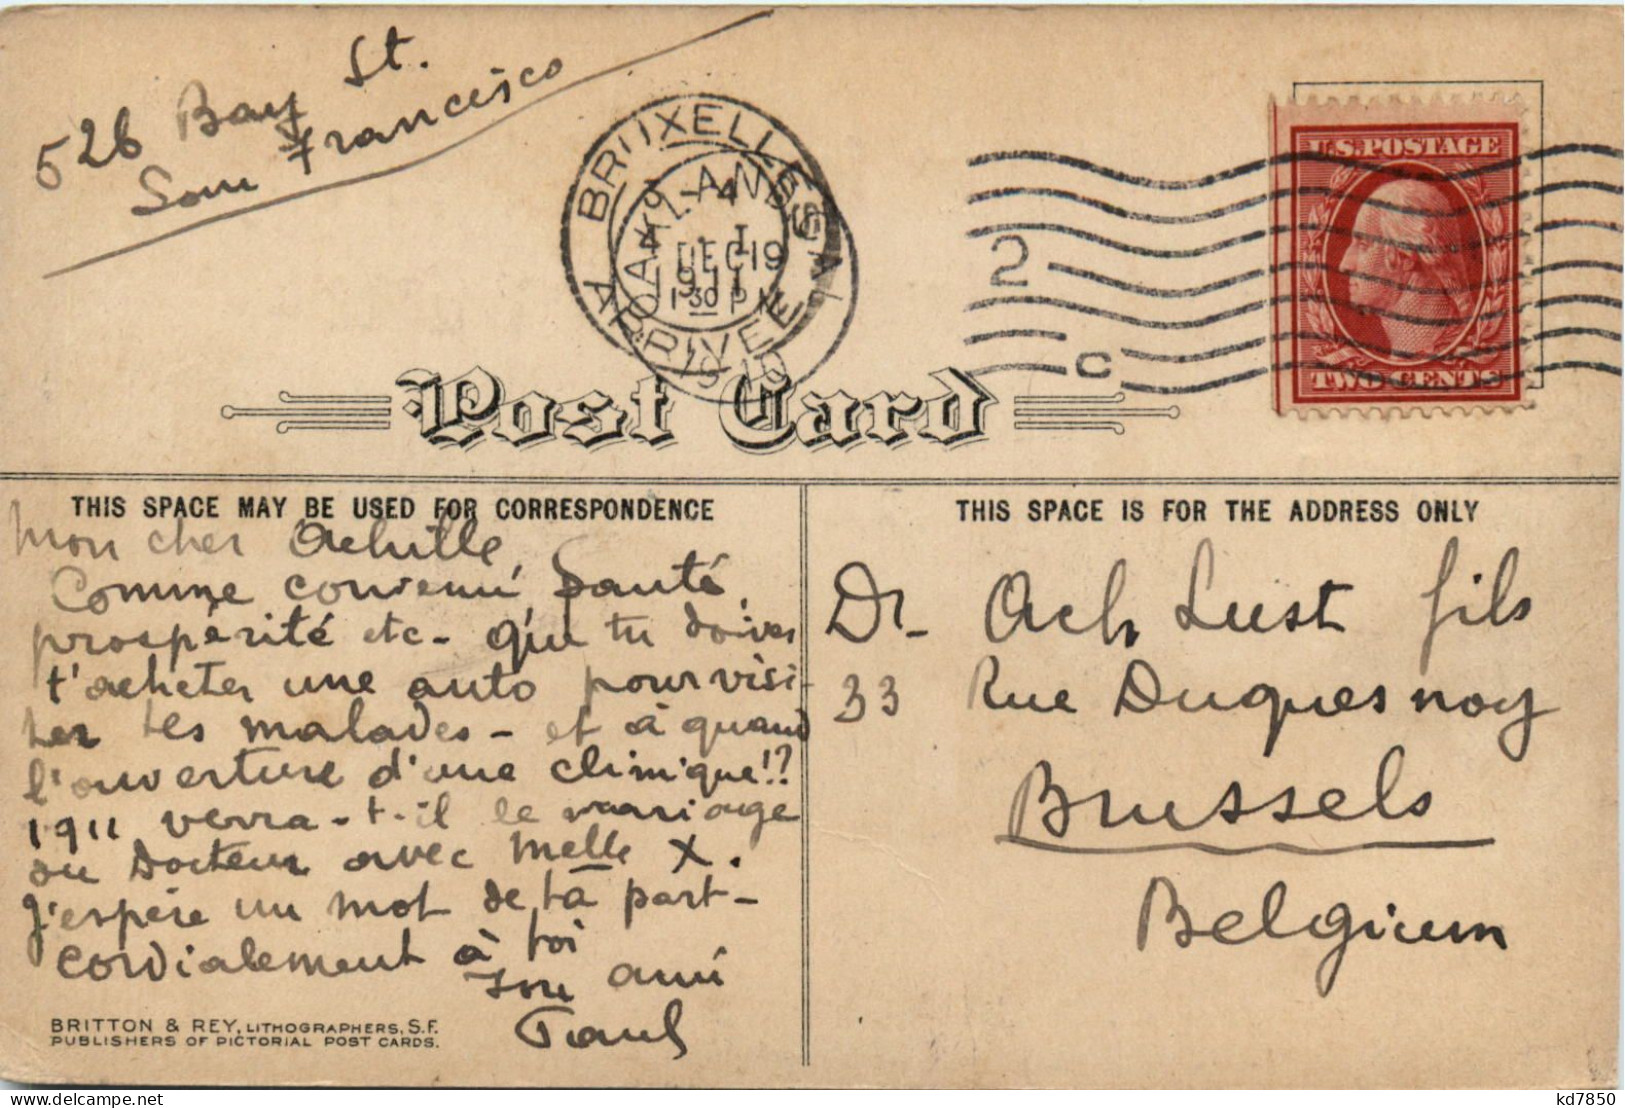 526 Bay St.
San Francisco
BRUXELLES
ARRIVEE
OAKLAND
CAL
DEC 19
1 30 P M
1910
2 C
U.S. POSTAGE
TWO CENTS
Post Card
THIS SPACE MAY BE USED FOR CORRESPONDENCE
Mon cher Achille
Comme convenu, santé,
prospérité etc - que tu doives
t'acheter une auto pour visi-
ter tes malades - et à quand
l'ouverture d'une clinique!?
1911 verra-t-il le mariage
du Docteur avec Melle X.
J'espère un mot de ta part -
cordialement à toi
Ton ami
Paul
BRITTON & REY, LITHOGRAPHERS, S.F.
PUBLISHERS OF PICTORIAL POST CARDS.
THIS SPACE IS FOR THE ADDRESS ONLY
Dr - Ach Lust fils
33 Rue Duquesnoy
Brussels
Belgium
delcampe.net
kd7850